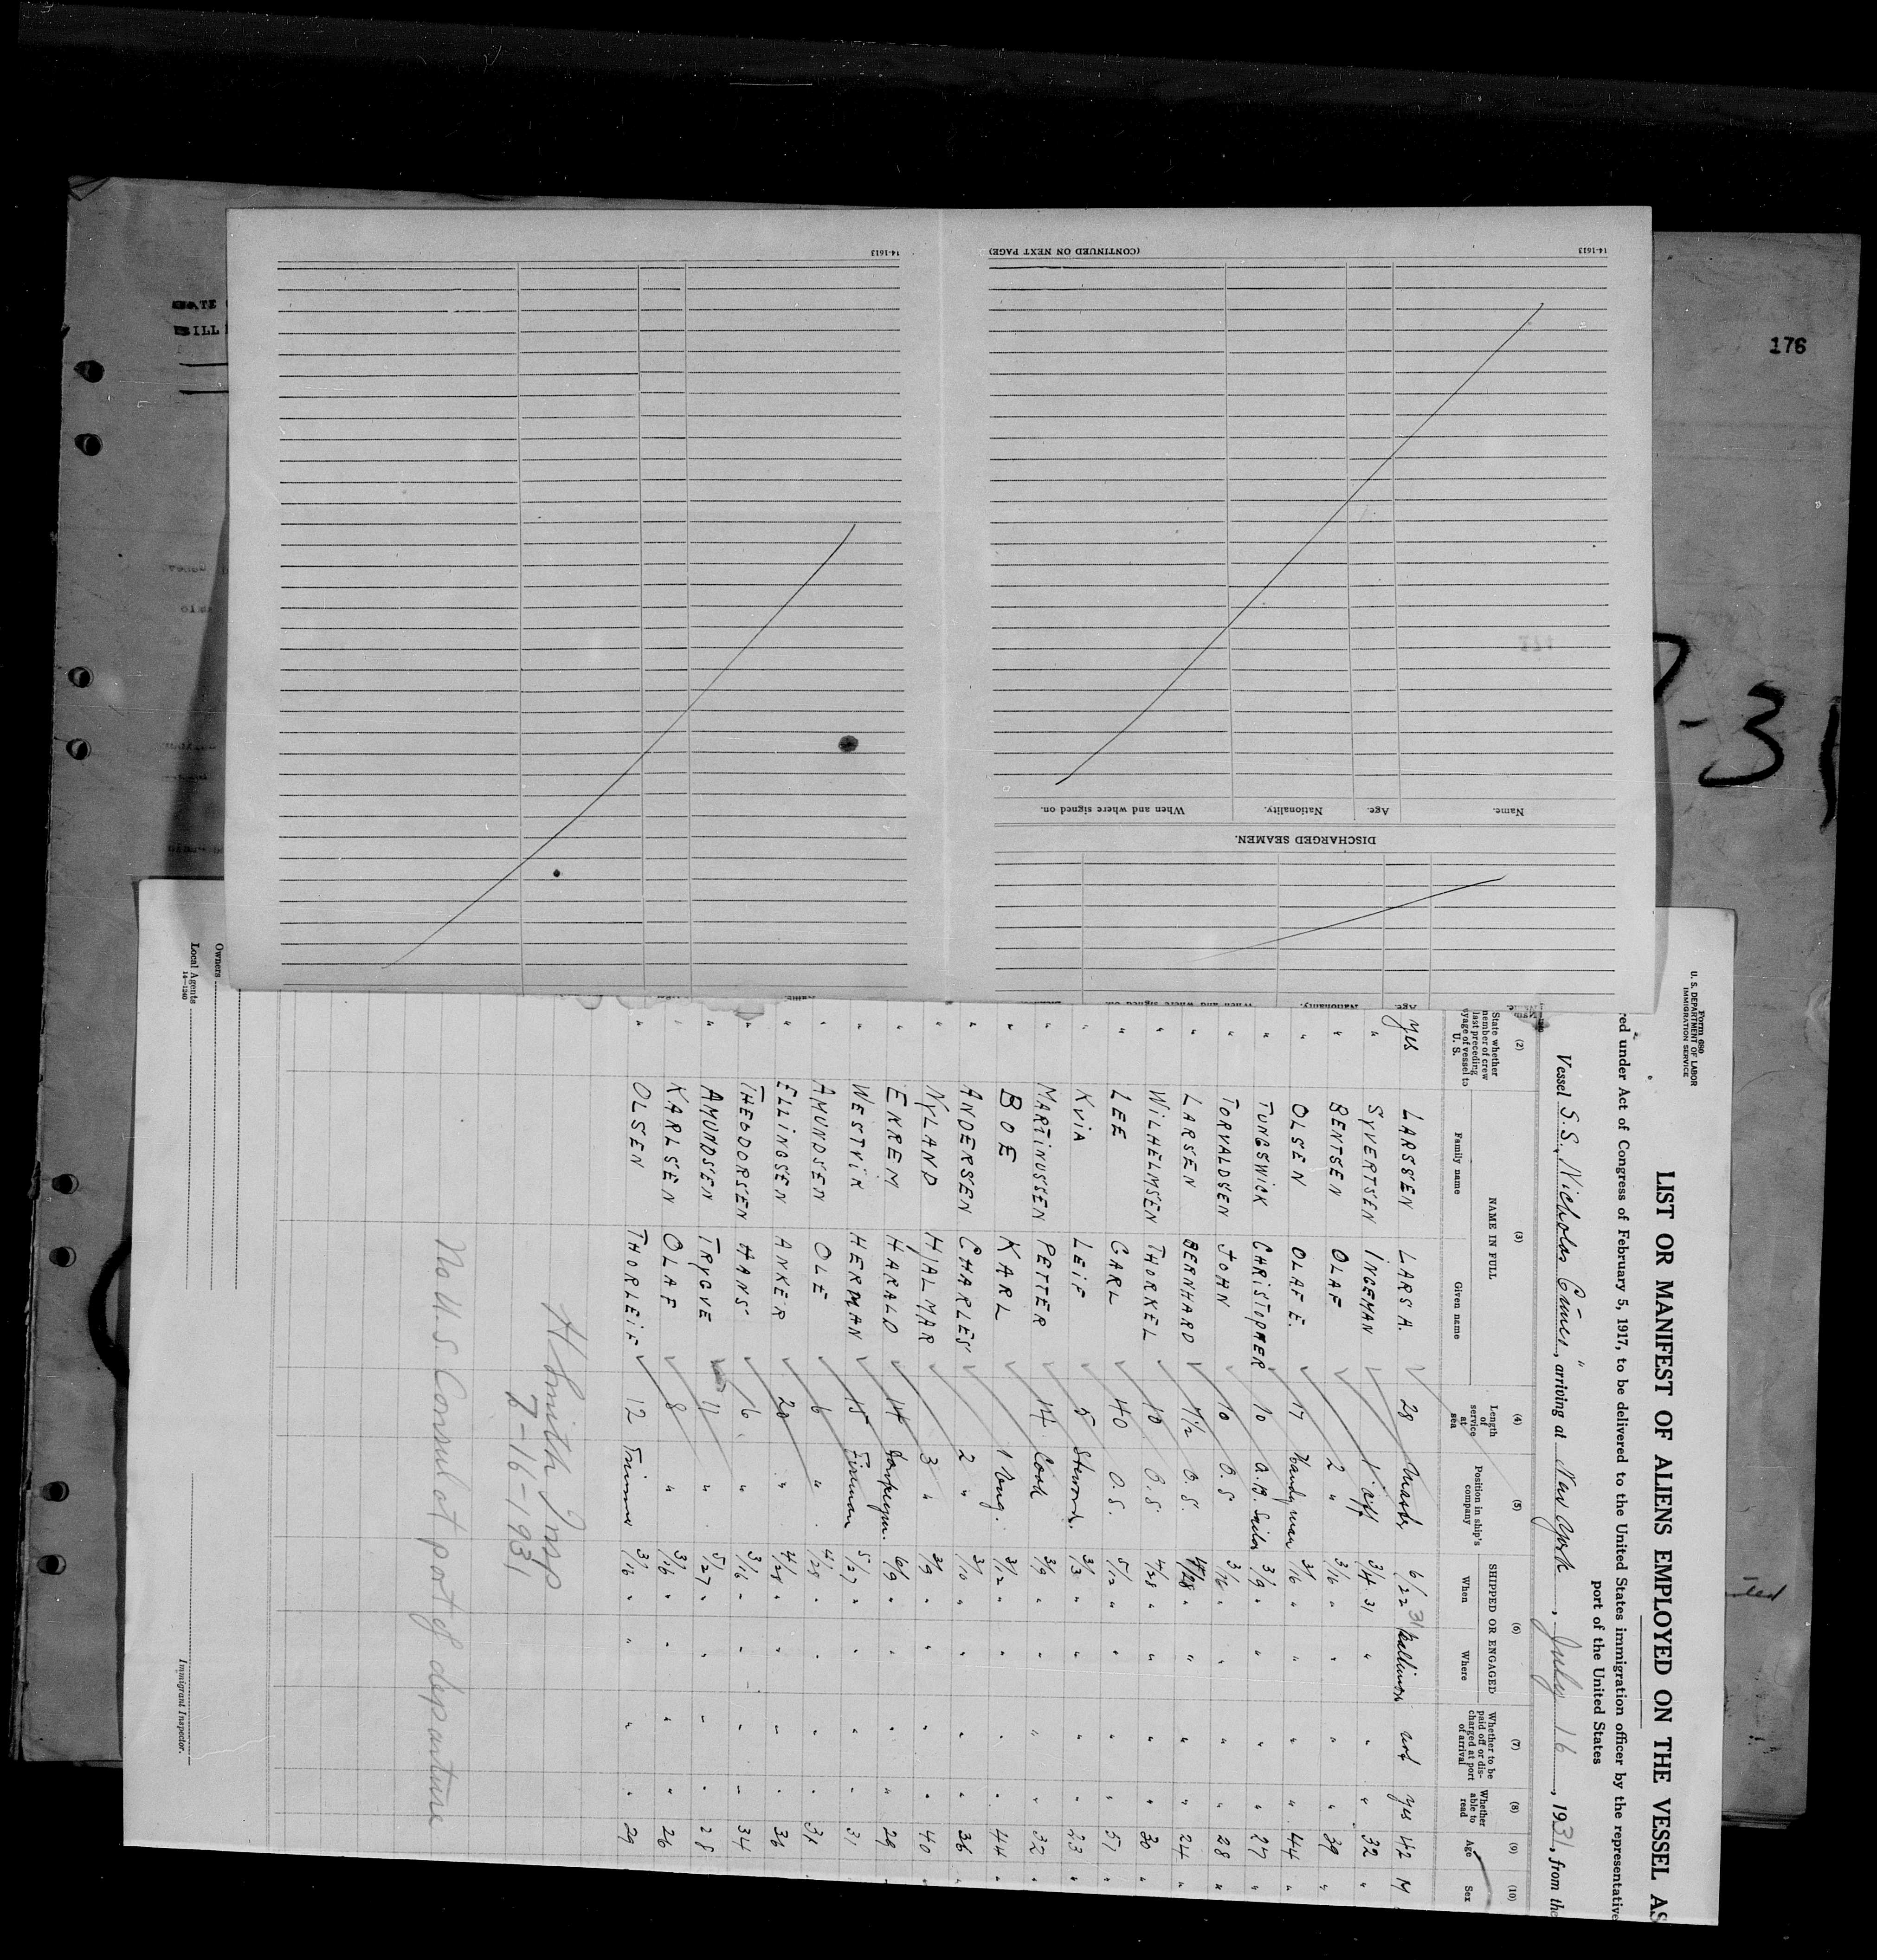 176
14-1613
(CONTINUED ON NEXT PAGE)
14-1613
Name. Age. Nationality. When and where signed on.
DISCHARGED SEAMEN.
Form 680
U. S. DEPARTMENT OF LABOR
IMMIGRATION SERVICE
LIST OR MANIFEST OF ALIENS EMPLOYED ON THE VESSEL AS
red under Act of Congress of February 5, 1917, to be delivered to the United States immigration officer by the representative
port of the United States
Vessel S.S. "Nicholas Cuneo", arriving at New York, July 16, 1931, from the
(2) (3) (4) (5) (6) (7) (8) (9) (10)
State whether member of crew last preceding voyage of vessel to U. S.
NAME IN FULL
Family name Given name
Length of service at sea
Position in ship's company
SHIPPED OR ENGAGED
When Where
Whether to be paid off or discharged at port of arrival
Whether able to read
Age
Sex
yes LARSSEN LARS A. 28 Master 6/22 31 Baltimore and yes 42 M
" SYVERTSEN INGEMAN 1' off 3/4 31 " " " 32 "
" BENTSEN OLAF 2 " 3/16 " " " " 39 "
" OLSEN OLAF E. 17 Handy man 3/16 " " " " 44 "
" TUNGSWICK CHRISTOPHER 10 A.B. Sailor 3/9 " " " " 27 "
" TORVALDSEN JOHN 10 O.S 3/16 " " " " 28 "
" LARSEN BERNHARD 1 1/2 O.S. 4/28 " " " " 24 "
" WILHELMSEN THORKEL 10 O.S. 4/28 " " " " 30 "
" LEE CARL 40 O.S. 5/12 " " " " 51 "
" KVIA LEIF 5 Steward. 3/13 " " " " 23 "
" MARTINUSSEN PETTER 14 Cook 3/9 " " " " 32 "
" BOE KARL 1 Eng. 3/12 " " " " 44 "
" ANDERSEN CHARLES 2 " 3/10 " " " " 36 "
" NYLAND HJALMAR 3 " 3/9 " " " " 40 "
" EKREM HARALD 14 Donkeym. 6/9 " " " " 29 "
" WESTVIK HERMAN 15 Fireman 5/27 " " " " 31 "
" AMUNDSEN OLE 6 " 4/28 " " " " 31 "
" ELLINGSEN ANKER 20 " 4/28 " " " " 36 "
" THEODORSEN HANS 6 " 3/16 " " " " 34 "
" AMUNDSEN TRYGVE 11 " 5/27 " " " " 28 "
" KARLSEN OLAF 8 " 3/16 " " " " 26 "
" OLSEN THORLEIF 12 Trimmer 3/16 " " " " 29 "
H Smith Insp
7-16-1931
No U.S. Consul at port of departure
Owners
Local Agents
14-1240
Immigrant Inspector.